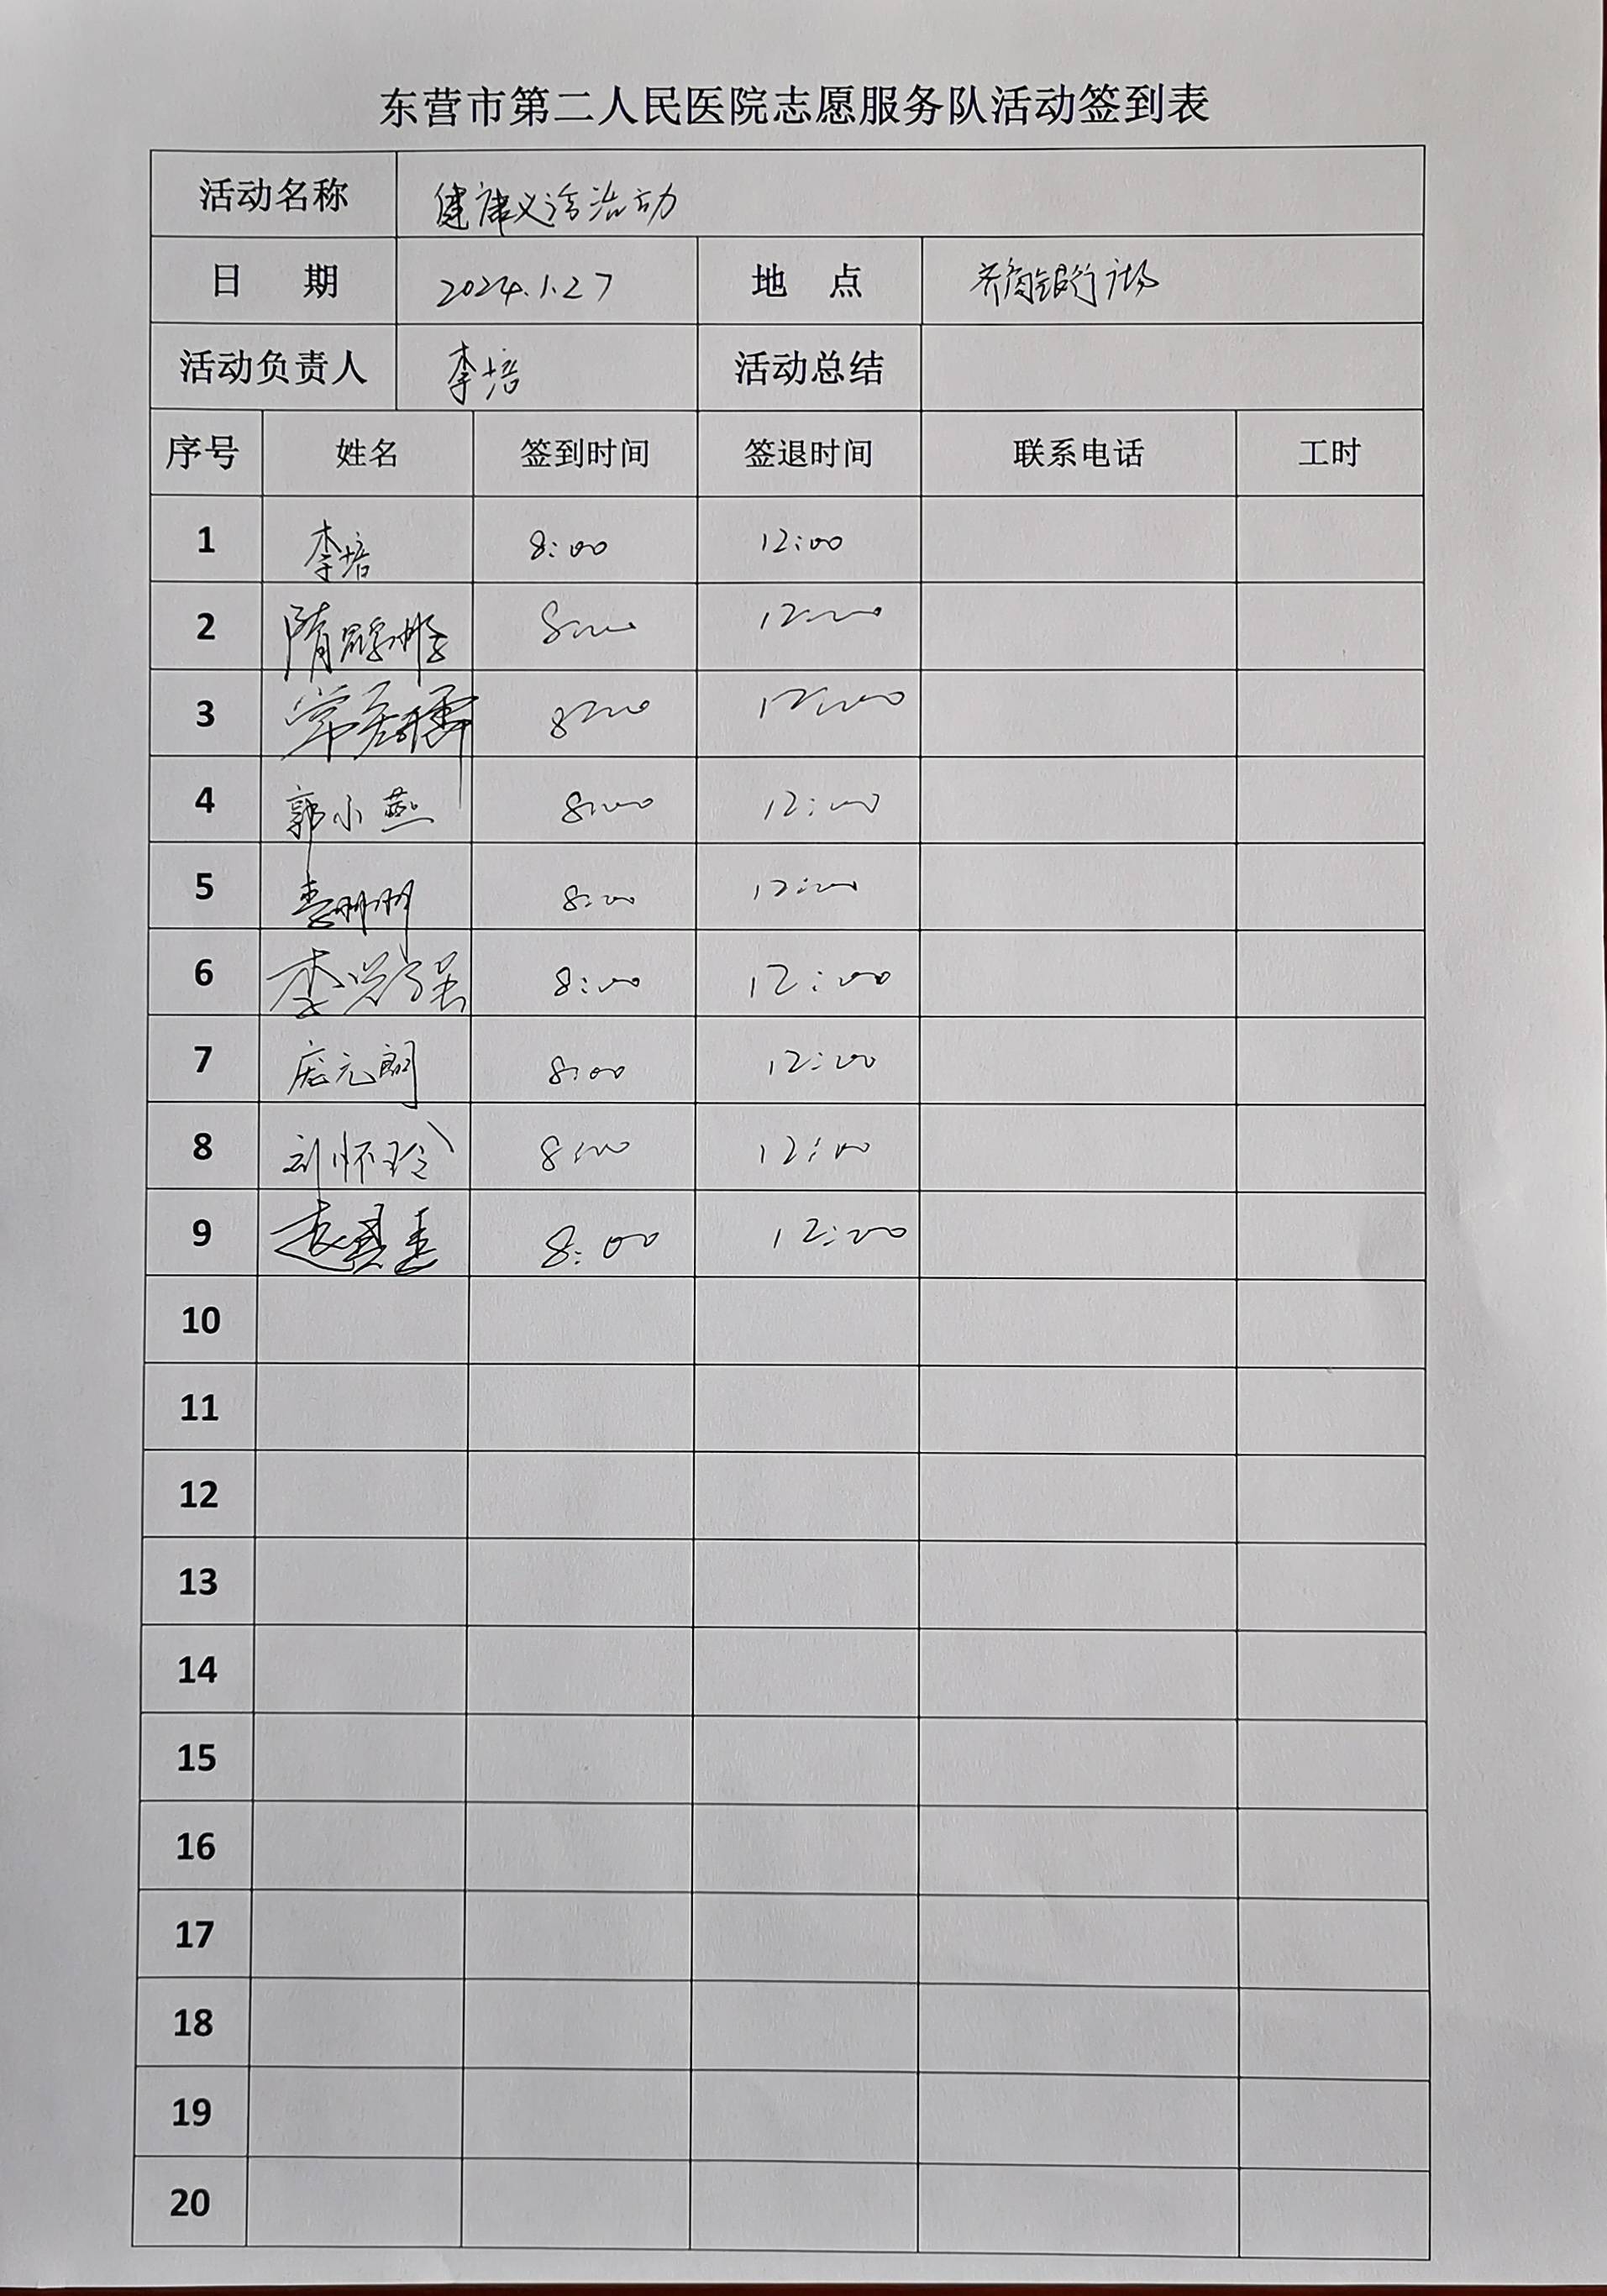 东营市第二人民医院志愿服务队活动签到表
活动名称 健康义诊活动
日 期 2024.1.27 地 点 齐商银行广场
活动负责人 李培 活动总结
序号 姓名 签到时间 签退时间 联系电话 工时
1 李培 8:00 12:00
2 8:00 12:00
3 8:00 12:00
4 郭小燕 8:00 12:00
5 李朋朋 8:00 12:00
6 李 8:00 12:00
7 庞元朗 8:00 12:00
8 刘怀玲 8:00 12:00
9 8:00 12:00
10
11
12
13
14
15
16
17
18
19
20